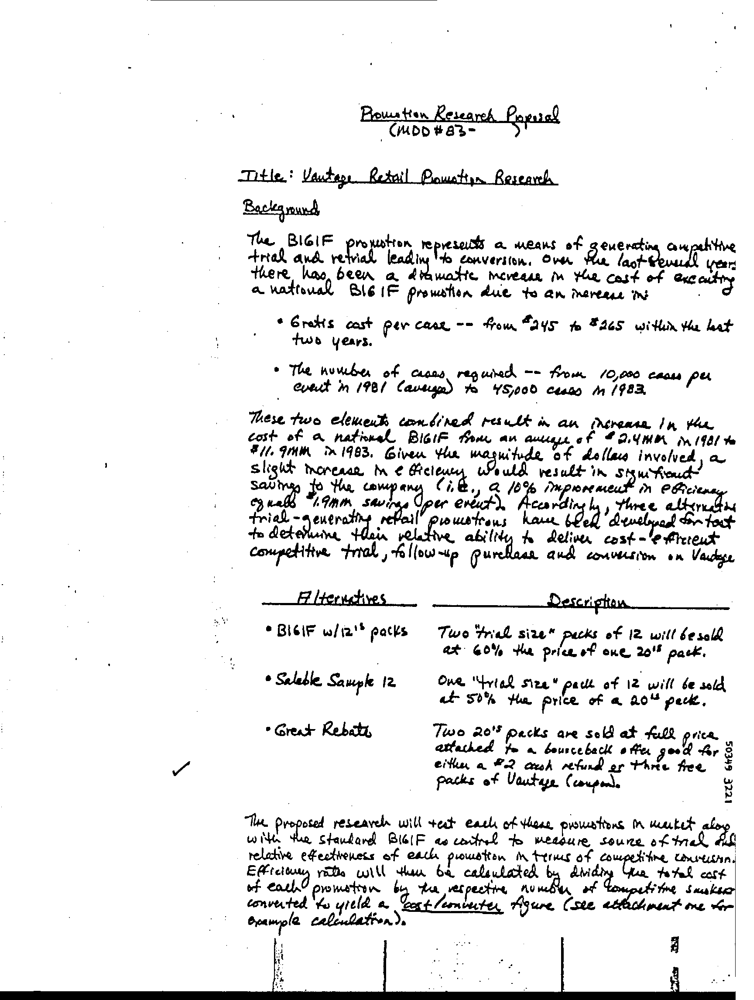 Promotion Research Proposal
(MDD #83-      )
Title: Vantage Retail Promotion Research
Background
The B1G1F promotion represents a means of generating competitive
trial and retrial leading to conversion. Over the last several years
there has been a dramatic increase in the cost of executing
a national B1G1F promotion due to an increase in:
• Gratis cost per case -- from $245 to $265 within the last
two years.
• The number of cases required -- from 10,000 cases per
event in 1981 (average) to 45,000 cases in 1983.
These two elements combined result in an increase in the
cost of a national B1G1F from an average of $2.4MM in 1981 to
$11.9MM in 1983. Given the magnitude of dollars involved, a
slight increase in efficiency would result in significant
savings to the company (i.e., a 10% improvement in efficiency
equals $1.9MM savings per event). Accordingly, three alternative
trial-generating retail promotions have been developed for test
to determine their relative ability to deliver cost-efficient
competitive trial, follow-up purchase and conversion on Vantage
Alternatives Description
• B1G1F w/12's packs Two "trial size" packs of 12 will be sold
at 60% the price of one 20's pack.
• Salable Sample 12 One "trial size" pack of 12 will be sold
at 50% the price of a 20's pack.
• Great Rebate Two 20's packs are sold at full price
attached to a bounceback offer good for
either a $2 cash refund or three free
packs of Vantage (coupon).
50349 3221
The proposed research will test each of these promotions in market along
with the standard B1G1F as control to measure source of trial and
relative effectiveness of each promotion in terms of competitive conversion.
Efficiency ratios will then be calculated by dividing the total cost
of each promotion by the respective number of competitive smokers
converted to yield a cost/converter figure (see attachment one for
example calculation).